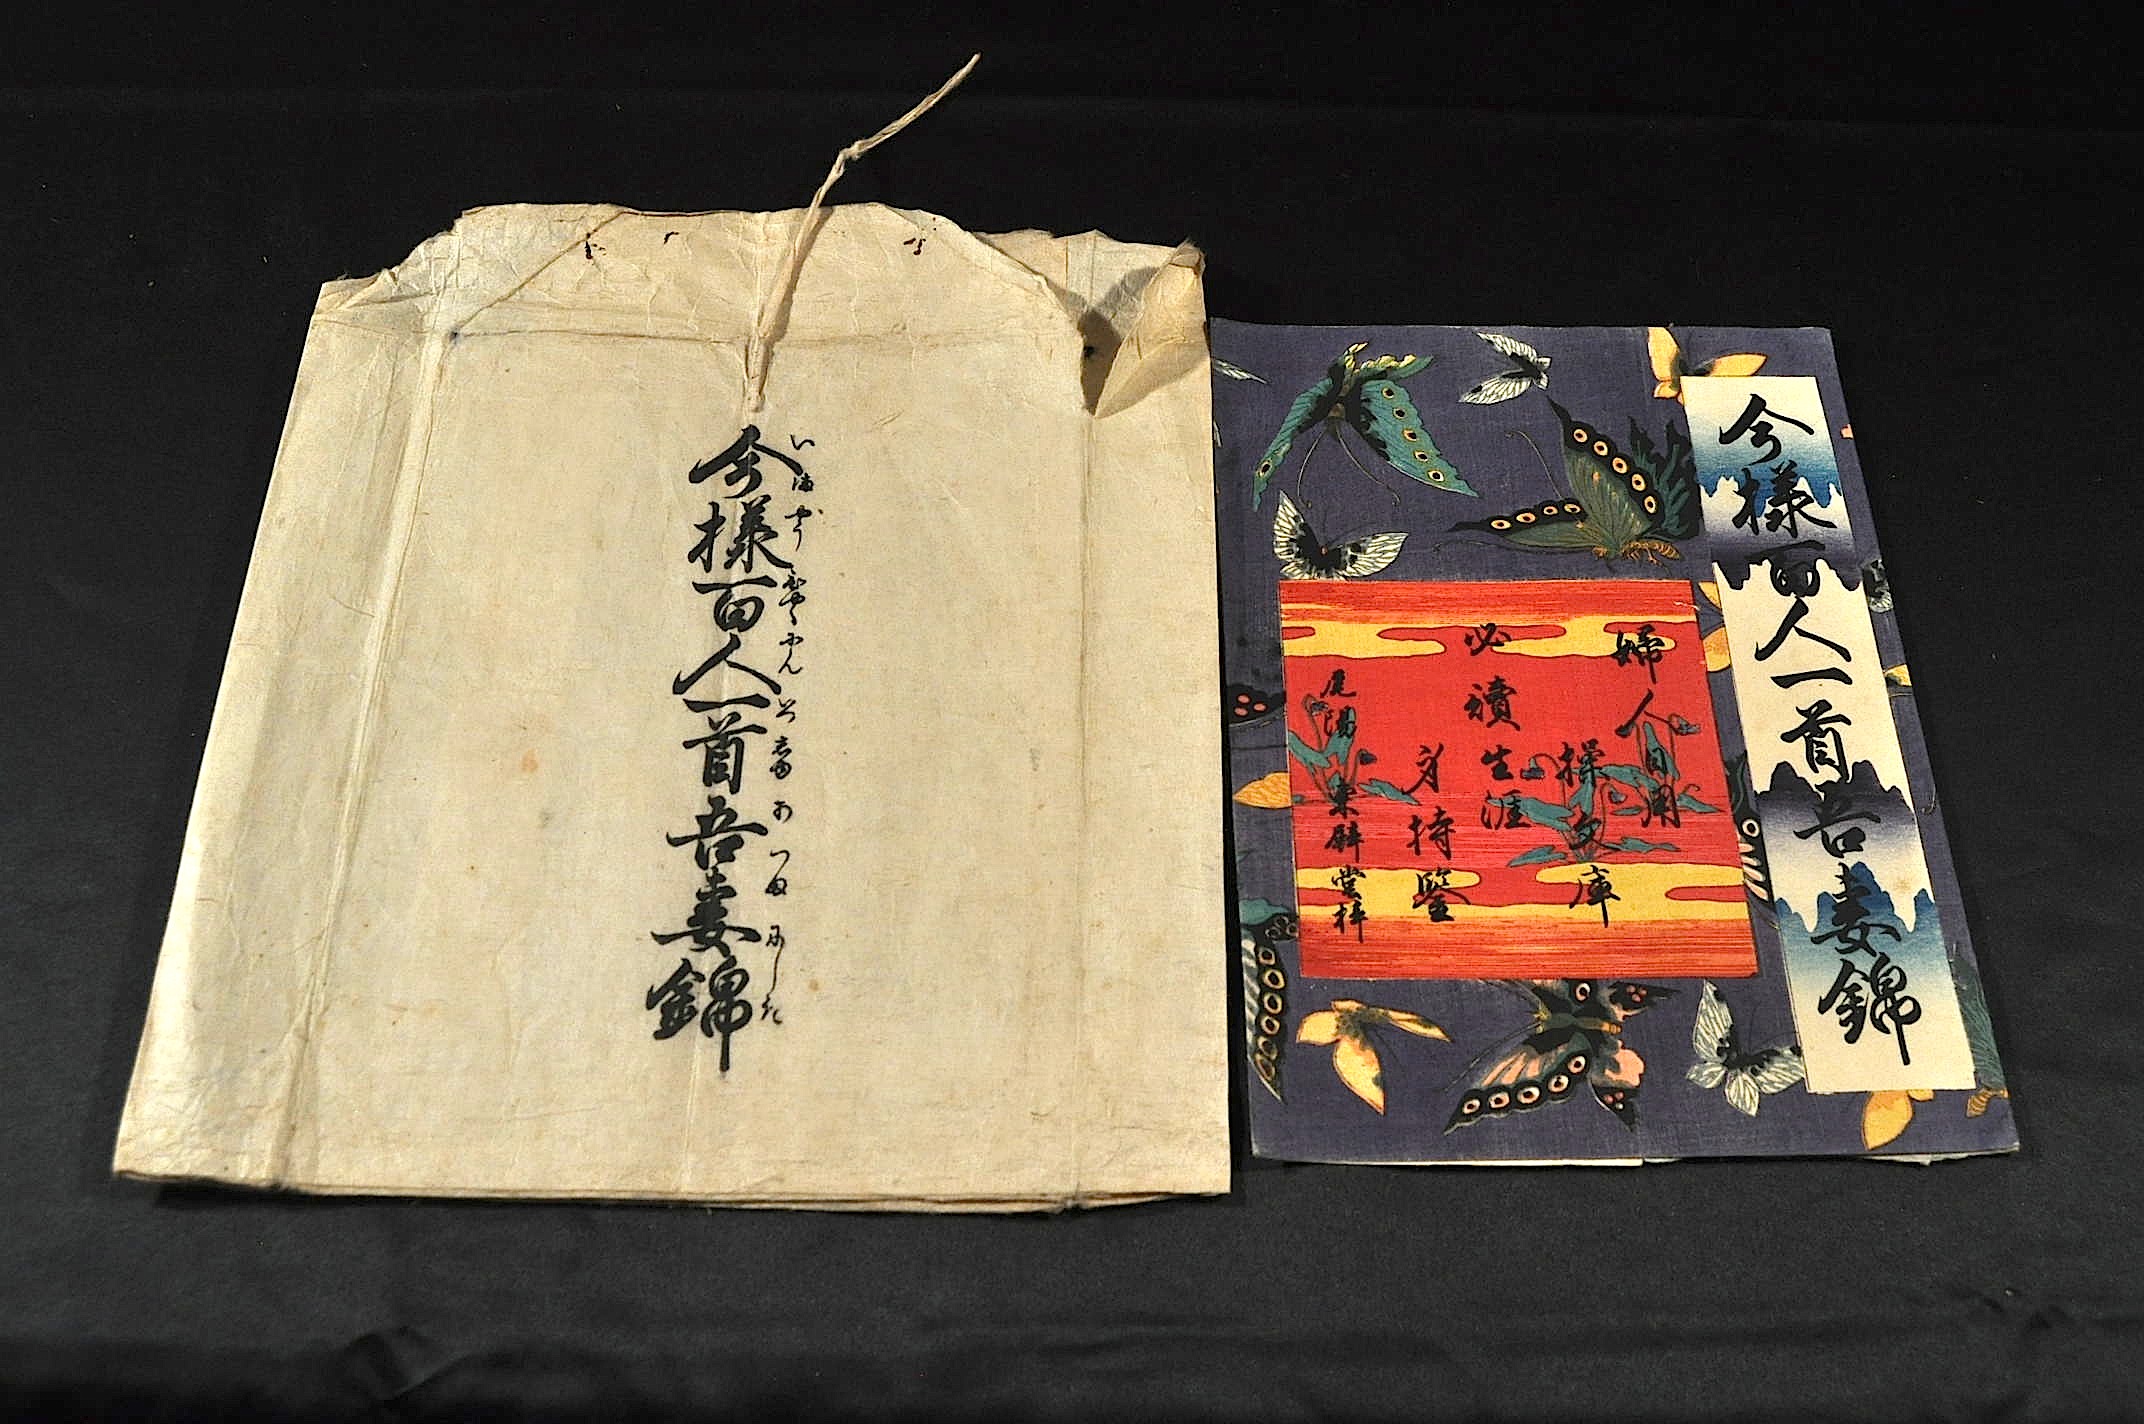 今様百人一首吾妻錦
いまやうひやくにんしゆあつまにしき
今様百人一首吾妻錦
婦人日用
操文庫
必讀生涯
身持鑒
尾陽 東壁堂梓